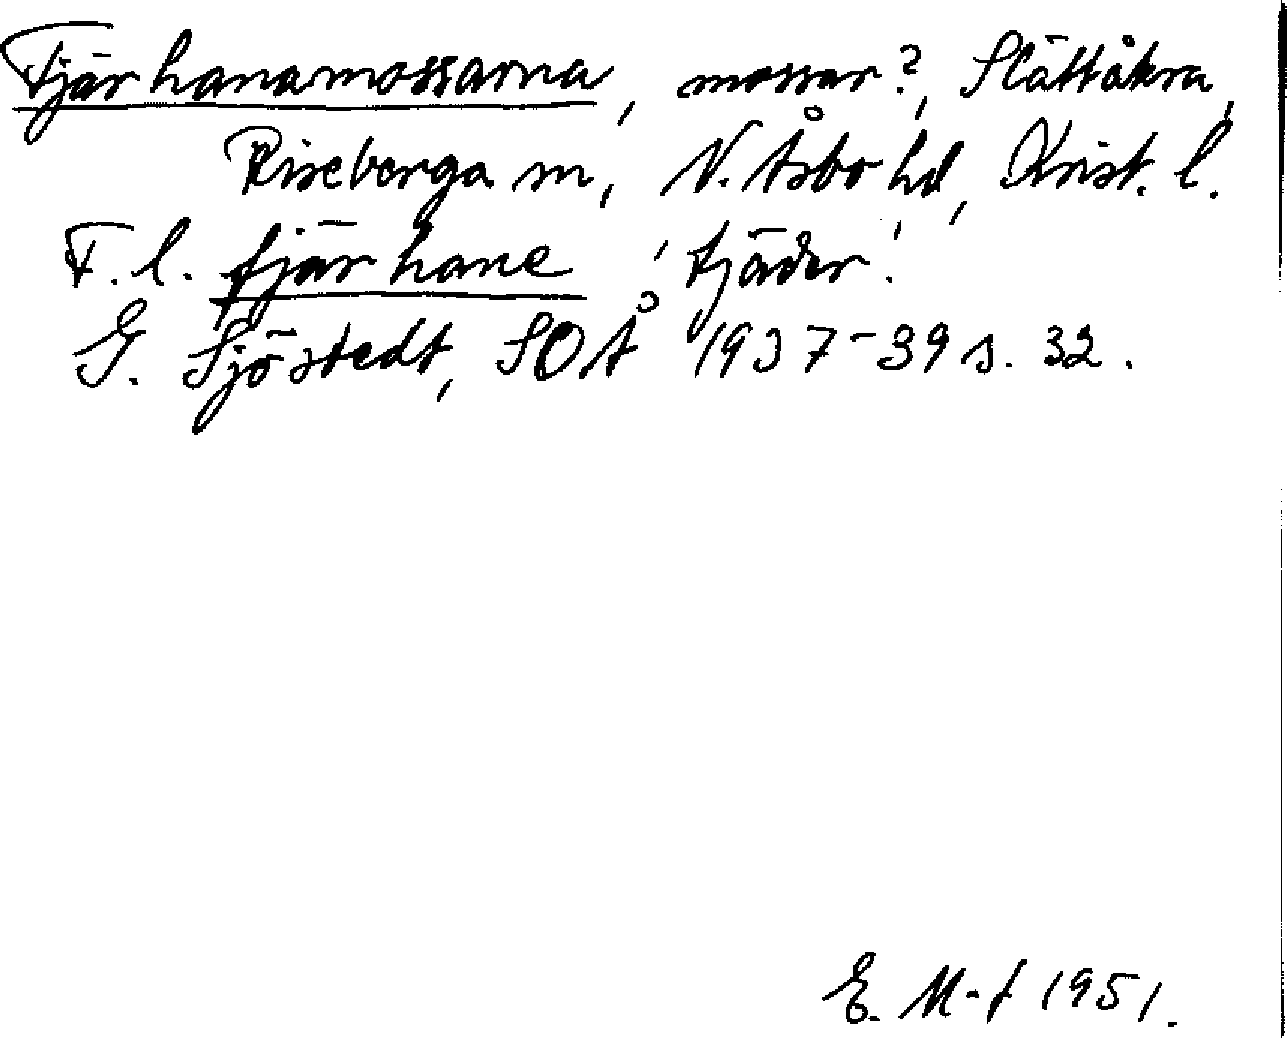 Fjärhanamossarna, mossar?, Slättåkra,
Riseberga sn, N. Åsbo hd, Krist. l.
F. l. fjärhane 'tjäder'.
G. Sjöstedt, SOÅ 1937-39 s. 32.
E. M-f 1951.